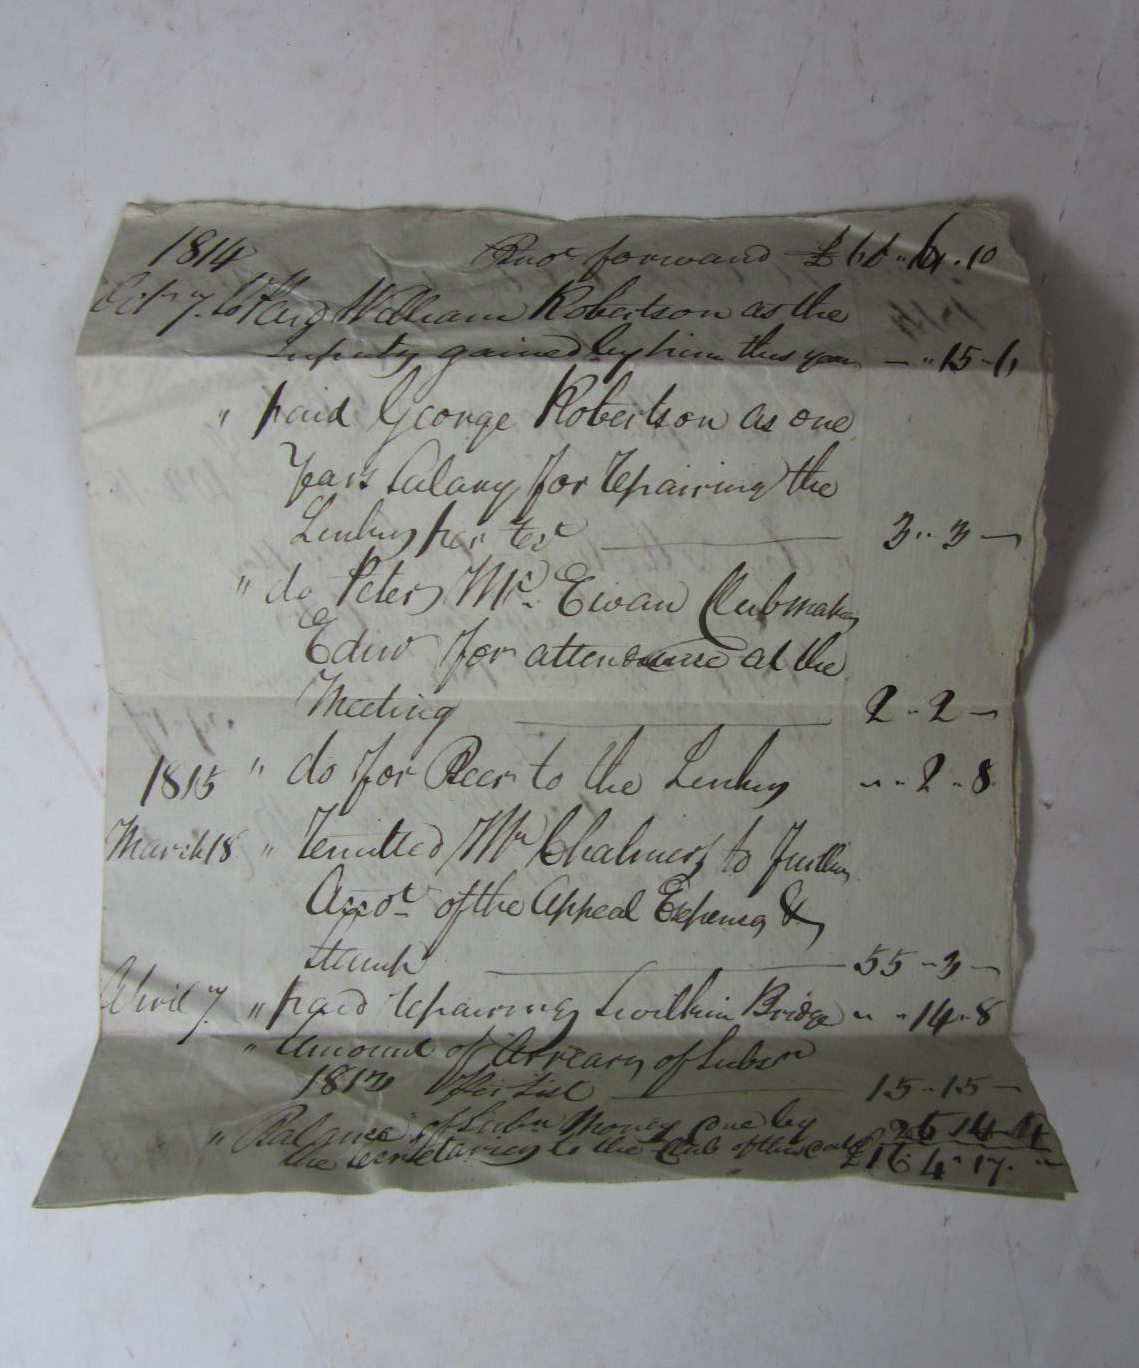 1814 Brot forward £61..16.10
Octr 7. To Paid William Robertson as the
gained by him this year — .. 15 - 6
" paid George Robertson as one
years Salary for repairing the
Links per rect 3..3 —
" do Peter Mc.Ewan Clubmaker
Edinr for attendance at the
Meeting 2..2 —
1815 " do for Beer to the Links - .. 2 .. 8
March 18 " remitted Mr Chalmers to further
Accot of the Appeal Expenses &
stamp 55 - 3 —
April 7. " paid repairing Swilkin Bridge " .. 14 .. 8
" Amount of Arrears of Subsn
1813 Per List 15..15 —
" Balance of Subn Money due by
the Secretary to the Club of this date 25 14 4
£164 " 17. "